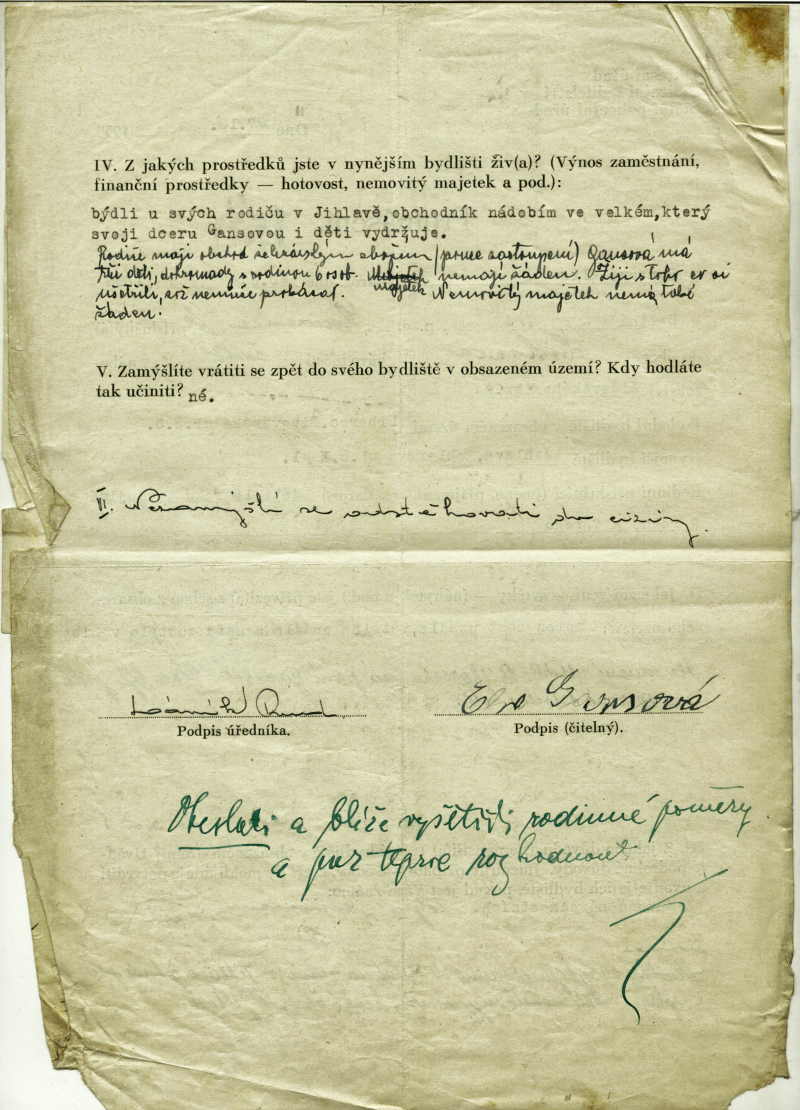 IV. Z jakých prostředků jste v nynějším bydlišti živ(a)? (Výnos zaměstnání,
finanční prostředky — hotovost, nemovitý majetek a pod.):
býdlí u svých rodičů v Jihlavě,obchodník nádobím ve velkém,který
svoji dceru Gansovou i děti vydržuje.
Rodiče mají obchod železářským zbožím (pouze zastoupení) Gansová má
tři děti, dohromady s rodinou 6 osob. majetek nemají žáden. Žijí s toho co si
ušetřili, což nemůže prokázat. Nemovitý majetek nemá také
žáden.
V. Zamýšlíte vrátiti se zpět do svého bydliště v obsazeném území? Kdy hodláte
tak učiniti? né.
VI. Nezamýšlí se odstěhovati do ciziny.
Elsa Gansová
Podpis úředníka. Podpis (čitelný).
Obeslati a blíže vyšetřiti rodinné poměry
a pak teprve rozhodnout